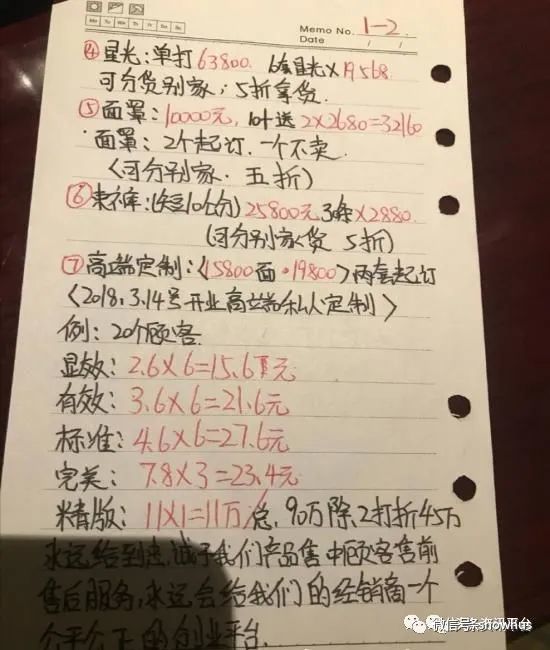 Mo Tu We Th Fr Sa Su
Memo No. 1-2.
Date / /
④星光:单打63800. 6套星光×19568.
可分货别家,5折拿货.
⑤面罩:10000元, 10个送2×2680=32160
面罩:2个起订.一个不卖.
(可分别家.五折)
⑥束裤:(短10长分) 25800元 30条×2880
(可分别家货 5折)
⑦高端定制:〈15800面·19800〉两套起订
〈2018.3.14号开业高端私人定制〉
例:20个顾客.
显效:2.6×6=15.6元
有效:3.6×6=21.6元
标准:4.6×6=27.6元
完美:7.8×3=23.4元
精版:11×1=11万 90万除2打折45万
永远给到忠诚于我们产品售中顾客售前
售后服务,永远会给我们的经销商一个
公平公正的创业平台.